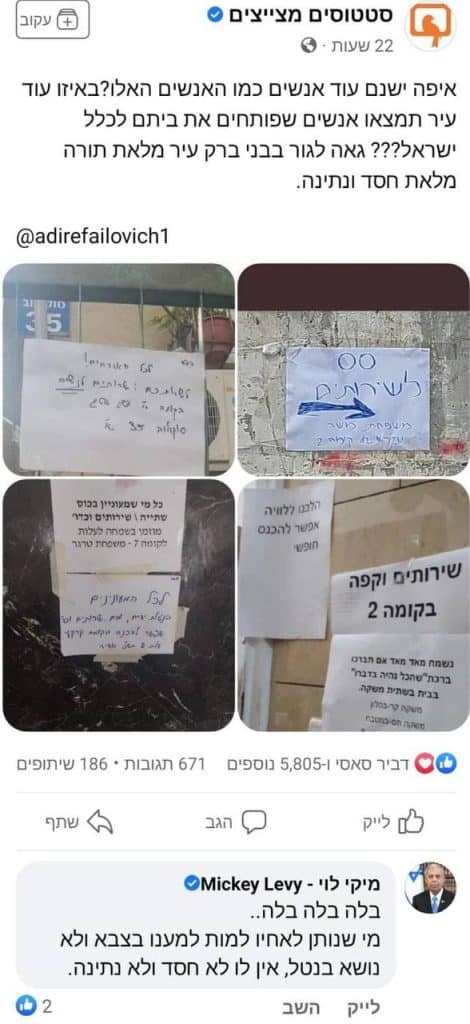 סטטוסים מצייצים
22 שעות
עקוב
איפה ישנם עוד אנשים כמו האנשים האלו?באיזו עוד
עיר תמצאו אנשים שפותחים את ביתם לכלל
ישראל??? גאה לגור בבני ברק עיר מלאת תורה
מלאת חסד ונתינה.
@adirefailovich1
35
לכל
לשירותים
כל מי שמעוניין בכוס
שתייה \ שירותים וכדו'
מוזמן בשמחה לעלות
לקומה 7 - משפחת טרגר
לכל המעונינים
הלכנו ללוויה
אפשר להכנס
חופשי
שירותים וקפה
בקומה 2
נשמח מאד מאד אם תברכו
ברכת "שהכל נהיה בדברו"
בבית בשתית משקה.
משקה קר-בסלון
משקה חם-במטבח
דביר סאסי ו-5,805 נוספים
671 תגובות • 186 שיתופים
לייק
הגב
שתף
מיקי לוי - Mickey Levy
בלה בלה בלה..
מי שנותן לאחיו למות למענו בצבא ולא
נושא בנטל, אין לו לא חסד ולא נתינה.
לייק
השב
2